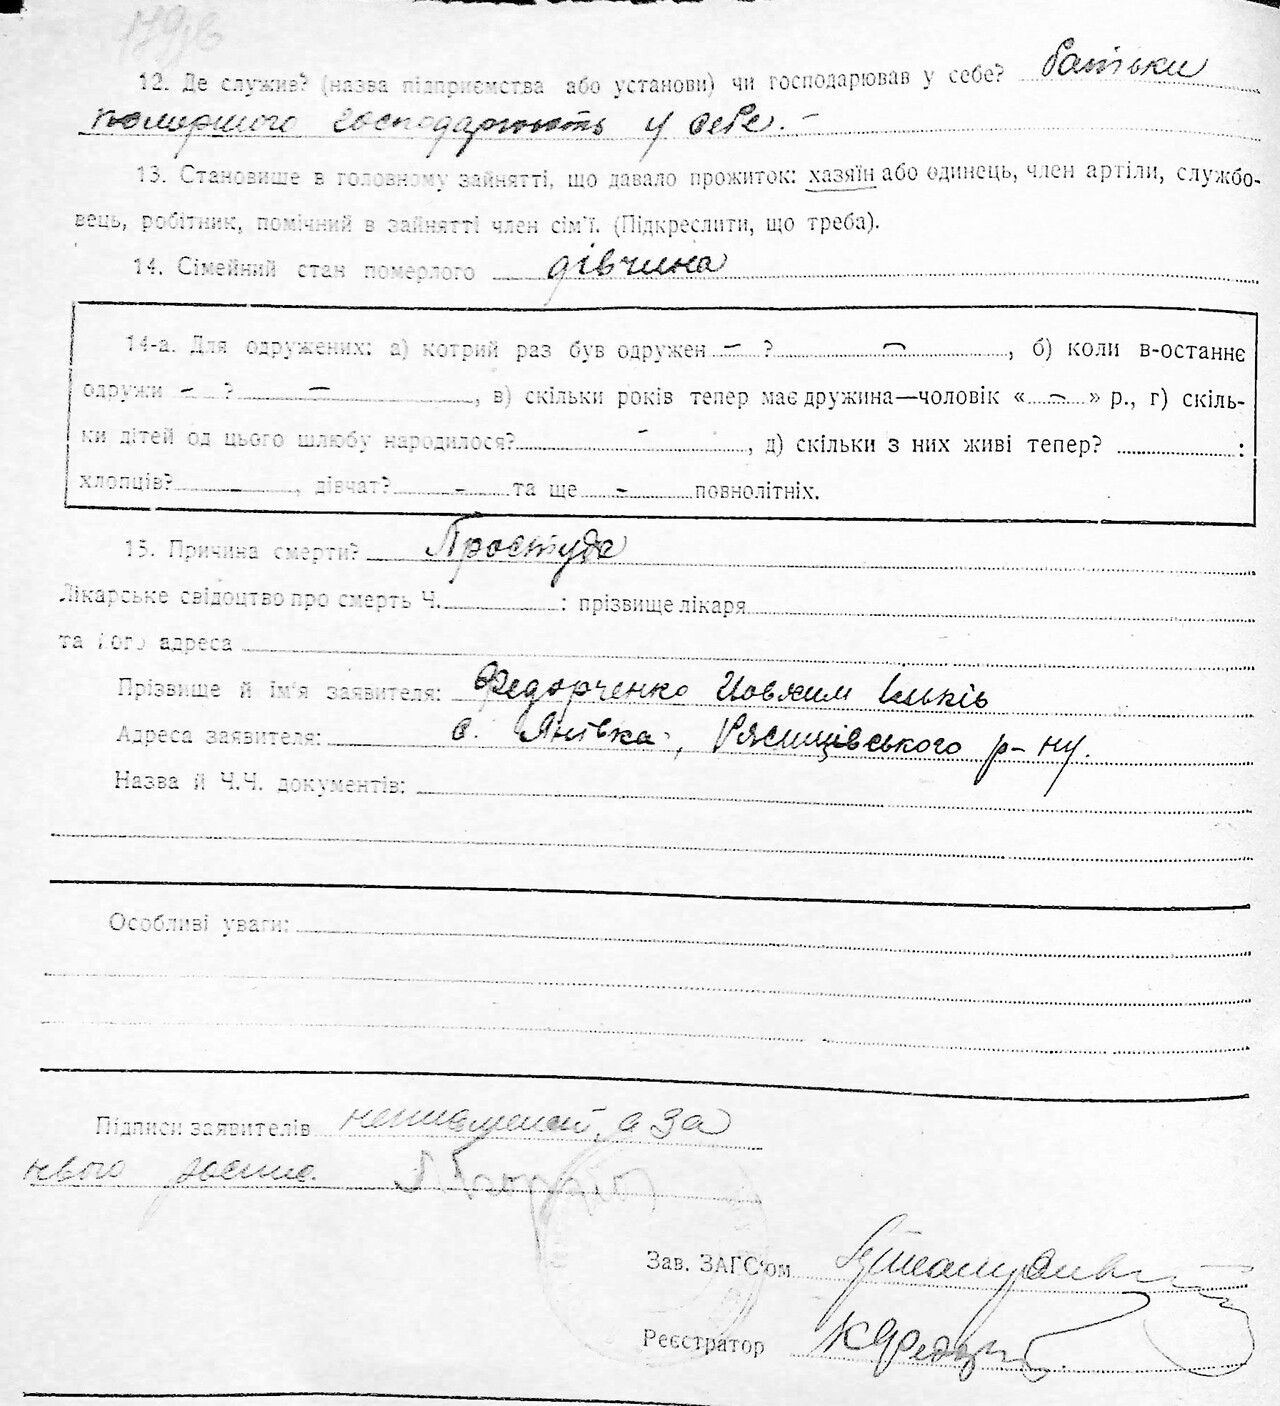 12. Де служив? (назва підприємства або установи) чи господарював у себе? батьки
помершого господарюють у себе. –
13. Становище в головному зайнятті, що давало прожиток: хазяїн або одинець, член артіли, службо-
вець, робітник, помічний в зайнятті член сім'ї. (Підкреслити, що треба).
14. Сімейний стан померлого дівчина
14-а. Для одружених: а) котрий раз був одружен – ? –, б) коли в-останнє
одружи – ? –, в) скільки років тепер має дружина—чоловік « – » р., г) скіль-
ки дітей од цього шлюбу народилося? –, д) скільки з них живі тепер? :
хлопців? –, дівчат? – та ще – повнолітніх.
15. Причина смерти? Простуда
Лікарське свідоцтво про смерть Ч. : прізвище лікаря
та його адреса
Прізвище й ім'я заявителя: Федорченко Йовхим
Адреса заявителя: с. Янівка, р-ну.
Назва й Ч.Ч. документів:
Особливі уваги:
Підписи заявителів неписьмений, а за
нього
Зав. ЗАГС'ом
Реєстратор